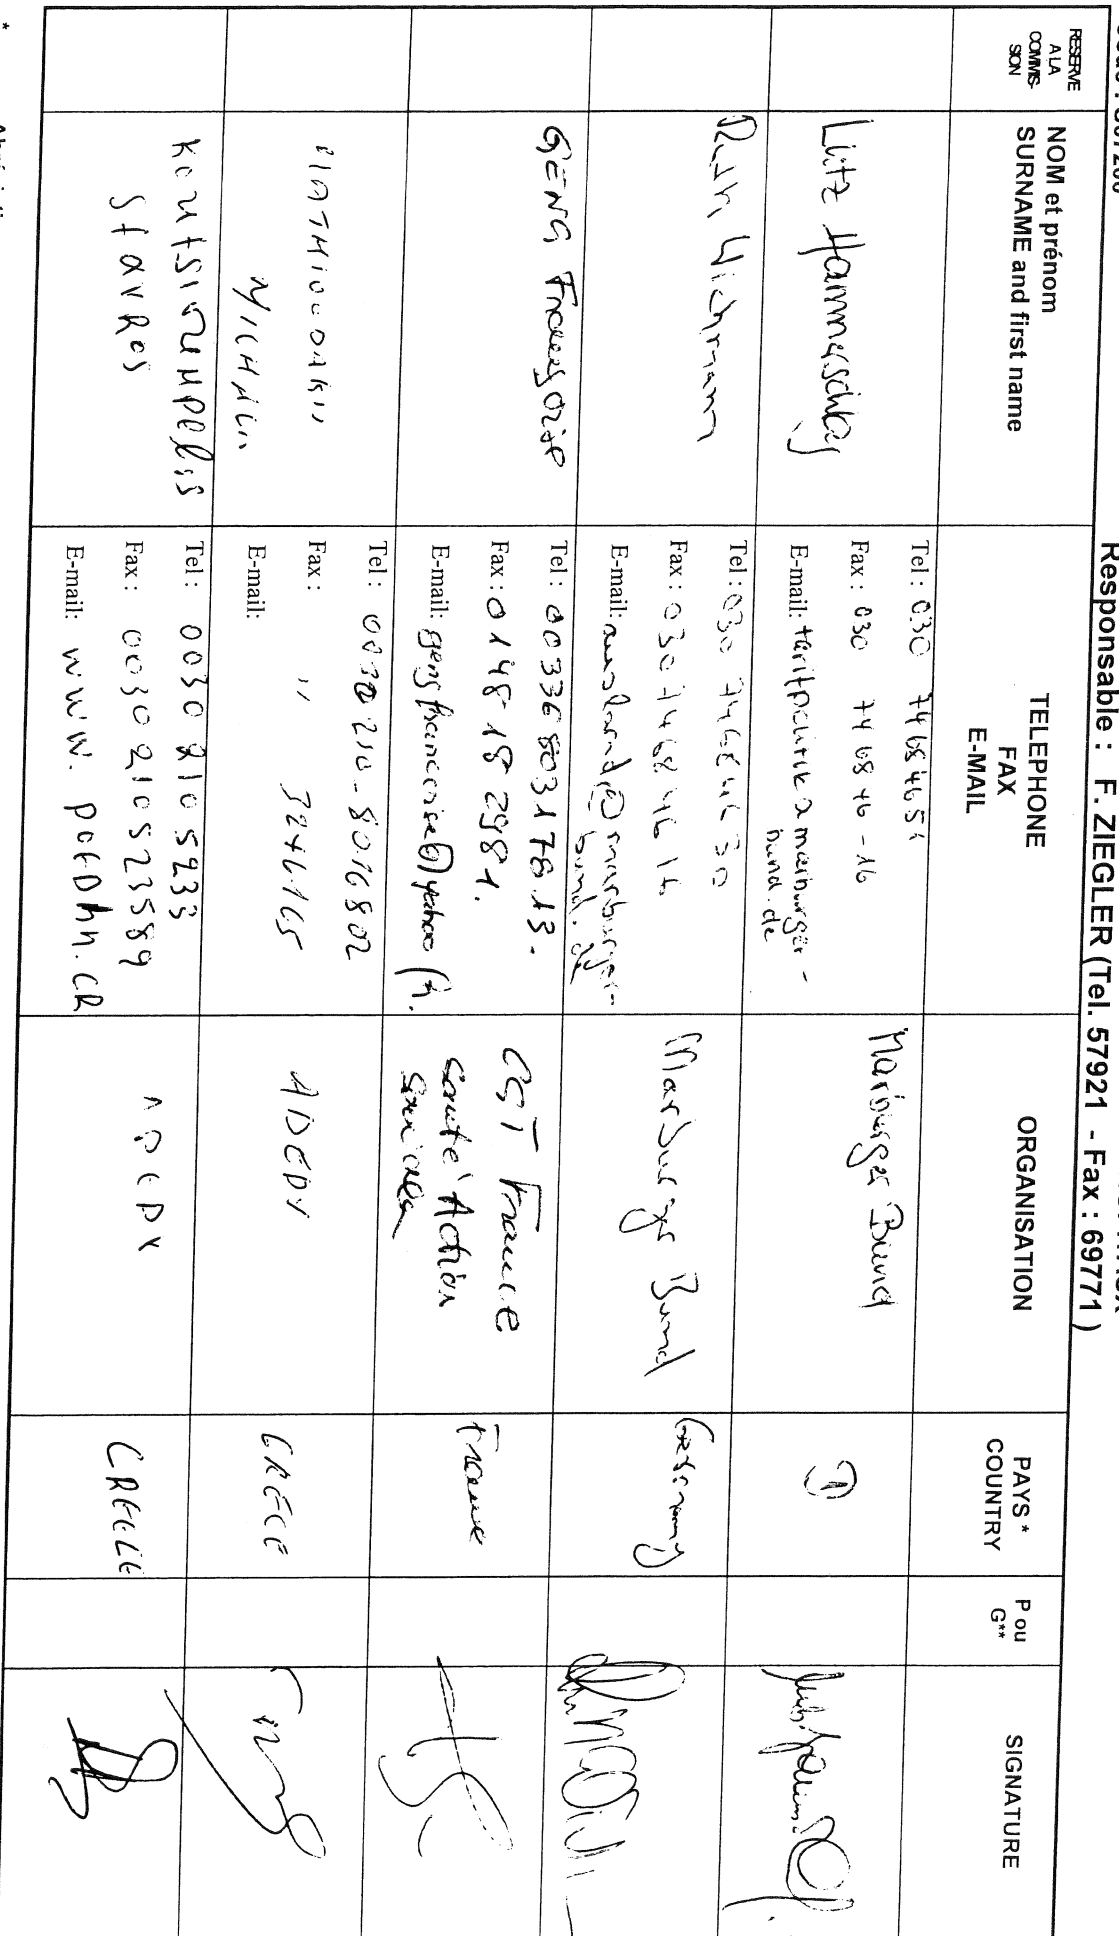 Responsable : F. ZIEGLER (Tel. 57921 - Fax : 69771 )
RESERVE
A LA
COMMIS-
SION
NOM et prénom
SURNAME and first name
TELEPHONE
FAX
E-MAIL
ORGANISATION
PAYS *
COUNTRY
P ou
G**
SIGNATURE
Lutz Hammerschlag
Tel : 030 7468465
Fax : 030 746846-16
E-mail: tarifpolitik marburger-
bund.de
Marburger Bund
D
Ruth Wichmann
Tel : 030 746846 30
Fax : 030 746846 16
E-mail: ausland@marburger-
bund.de
Marburger Bund
Germany
GENG Françoise
Tel : 0033680317813.
Fax : 0148182981.
E-mail: gengfrancoise@yahoo fr.
CGT France
Santé Action
Sociale
France
MICHAIL
Tel : 0030210-8016802
Fax : " 3246165
E-mail:
ADEDY
GREECE
Koutsioumpelis
StavRos
Tel : 0030 210 5233
Fax : 0030 210 5235589
E-mail: www.
CREECE
*